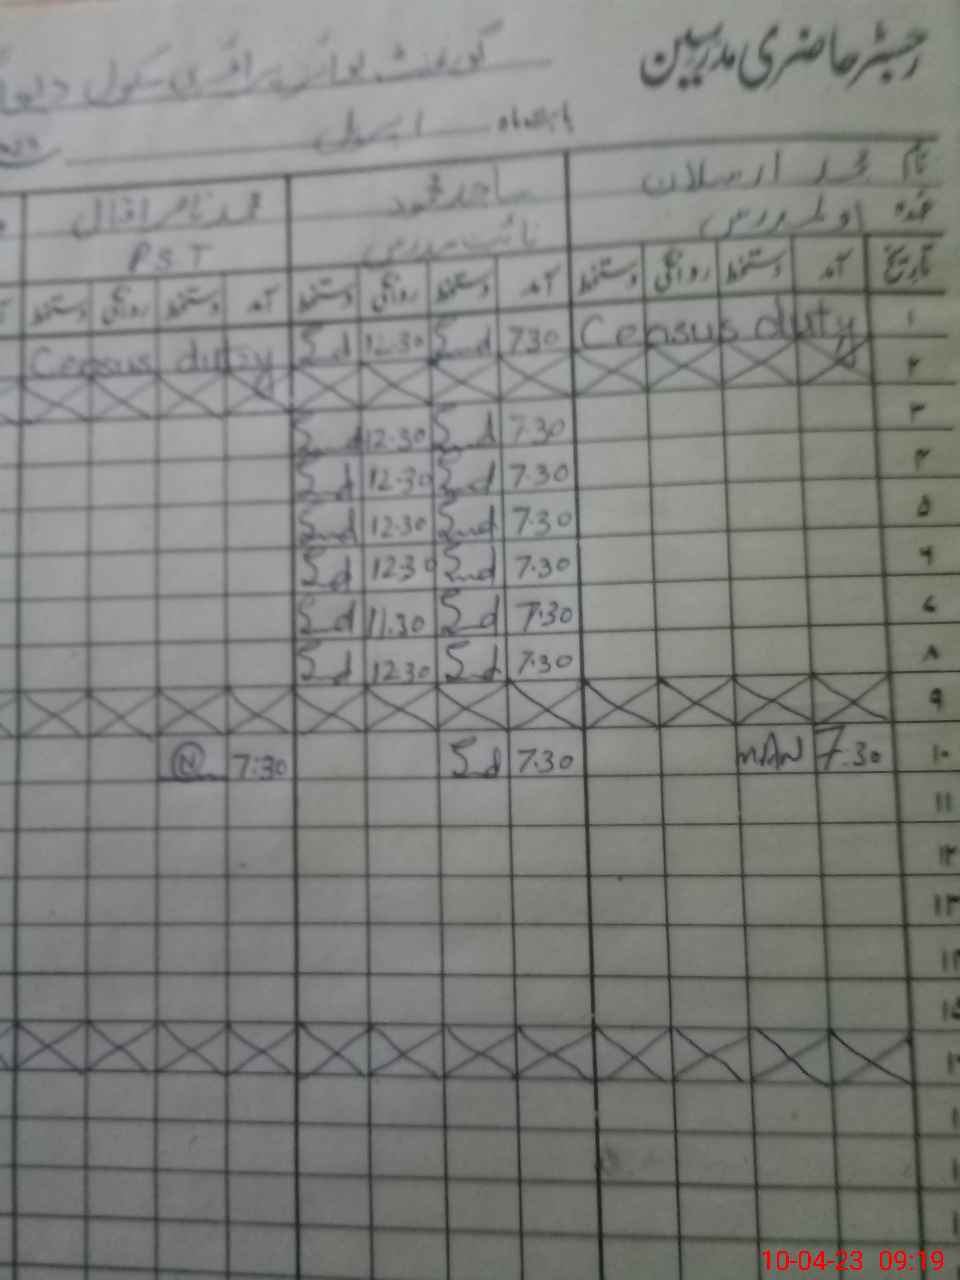 رجسٹر حاضری مدرسین
گورنمنٹ بوائز پرائمری سکول
بابت ماہ اپریل
نام محمد ارسلان ساجد محمود
عہدہ اول مدرس نائب مدرس PST
تاریخ آمد دستخط روانگی دستخط آمد دستخط روانگی دستخط آمد دستخط روانگی دستخط
۱ Census duty 7.30 Sd 12.30 Sd Census duty
۲
۳ 7.30 Sd 12.30 Sd
۴ 7.30 Sd 12.30 Sd
۵ 7.30 Sd 12.30 Sd
۶ 7.30 Sd 12.30 Sd
۷ 7.30 Sd 11.30 Sd
۸ 7.30 Sd 12.30 Sd
۹
۱۰ 7.30 MAN 7.30 Sd 7:30 N
۱۱
۱۲
۱۳
10-04-23 09:19